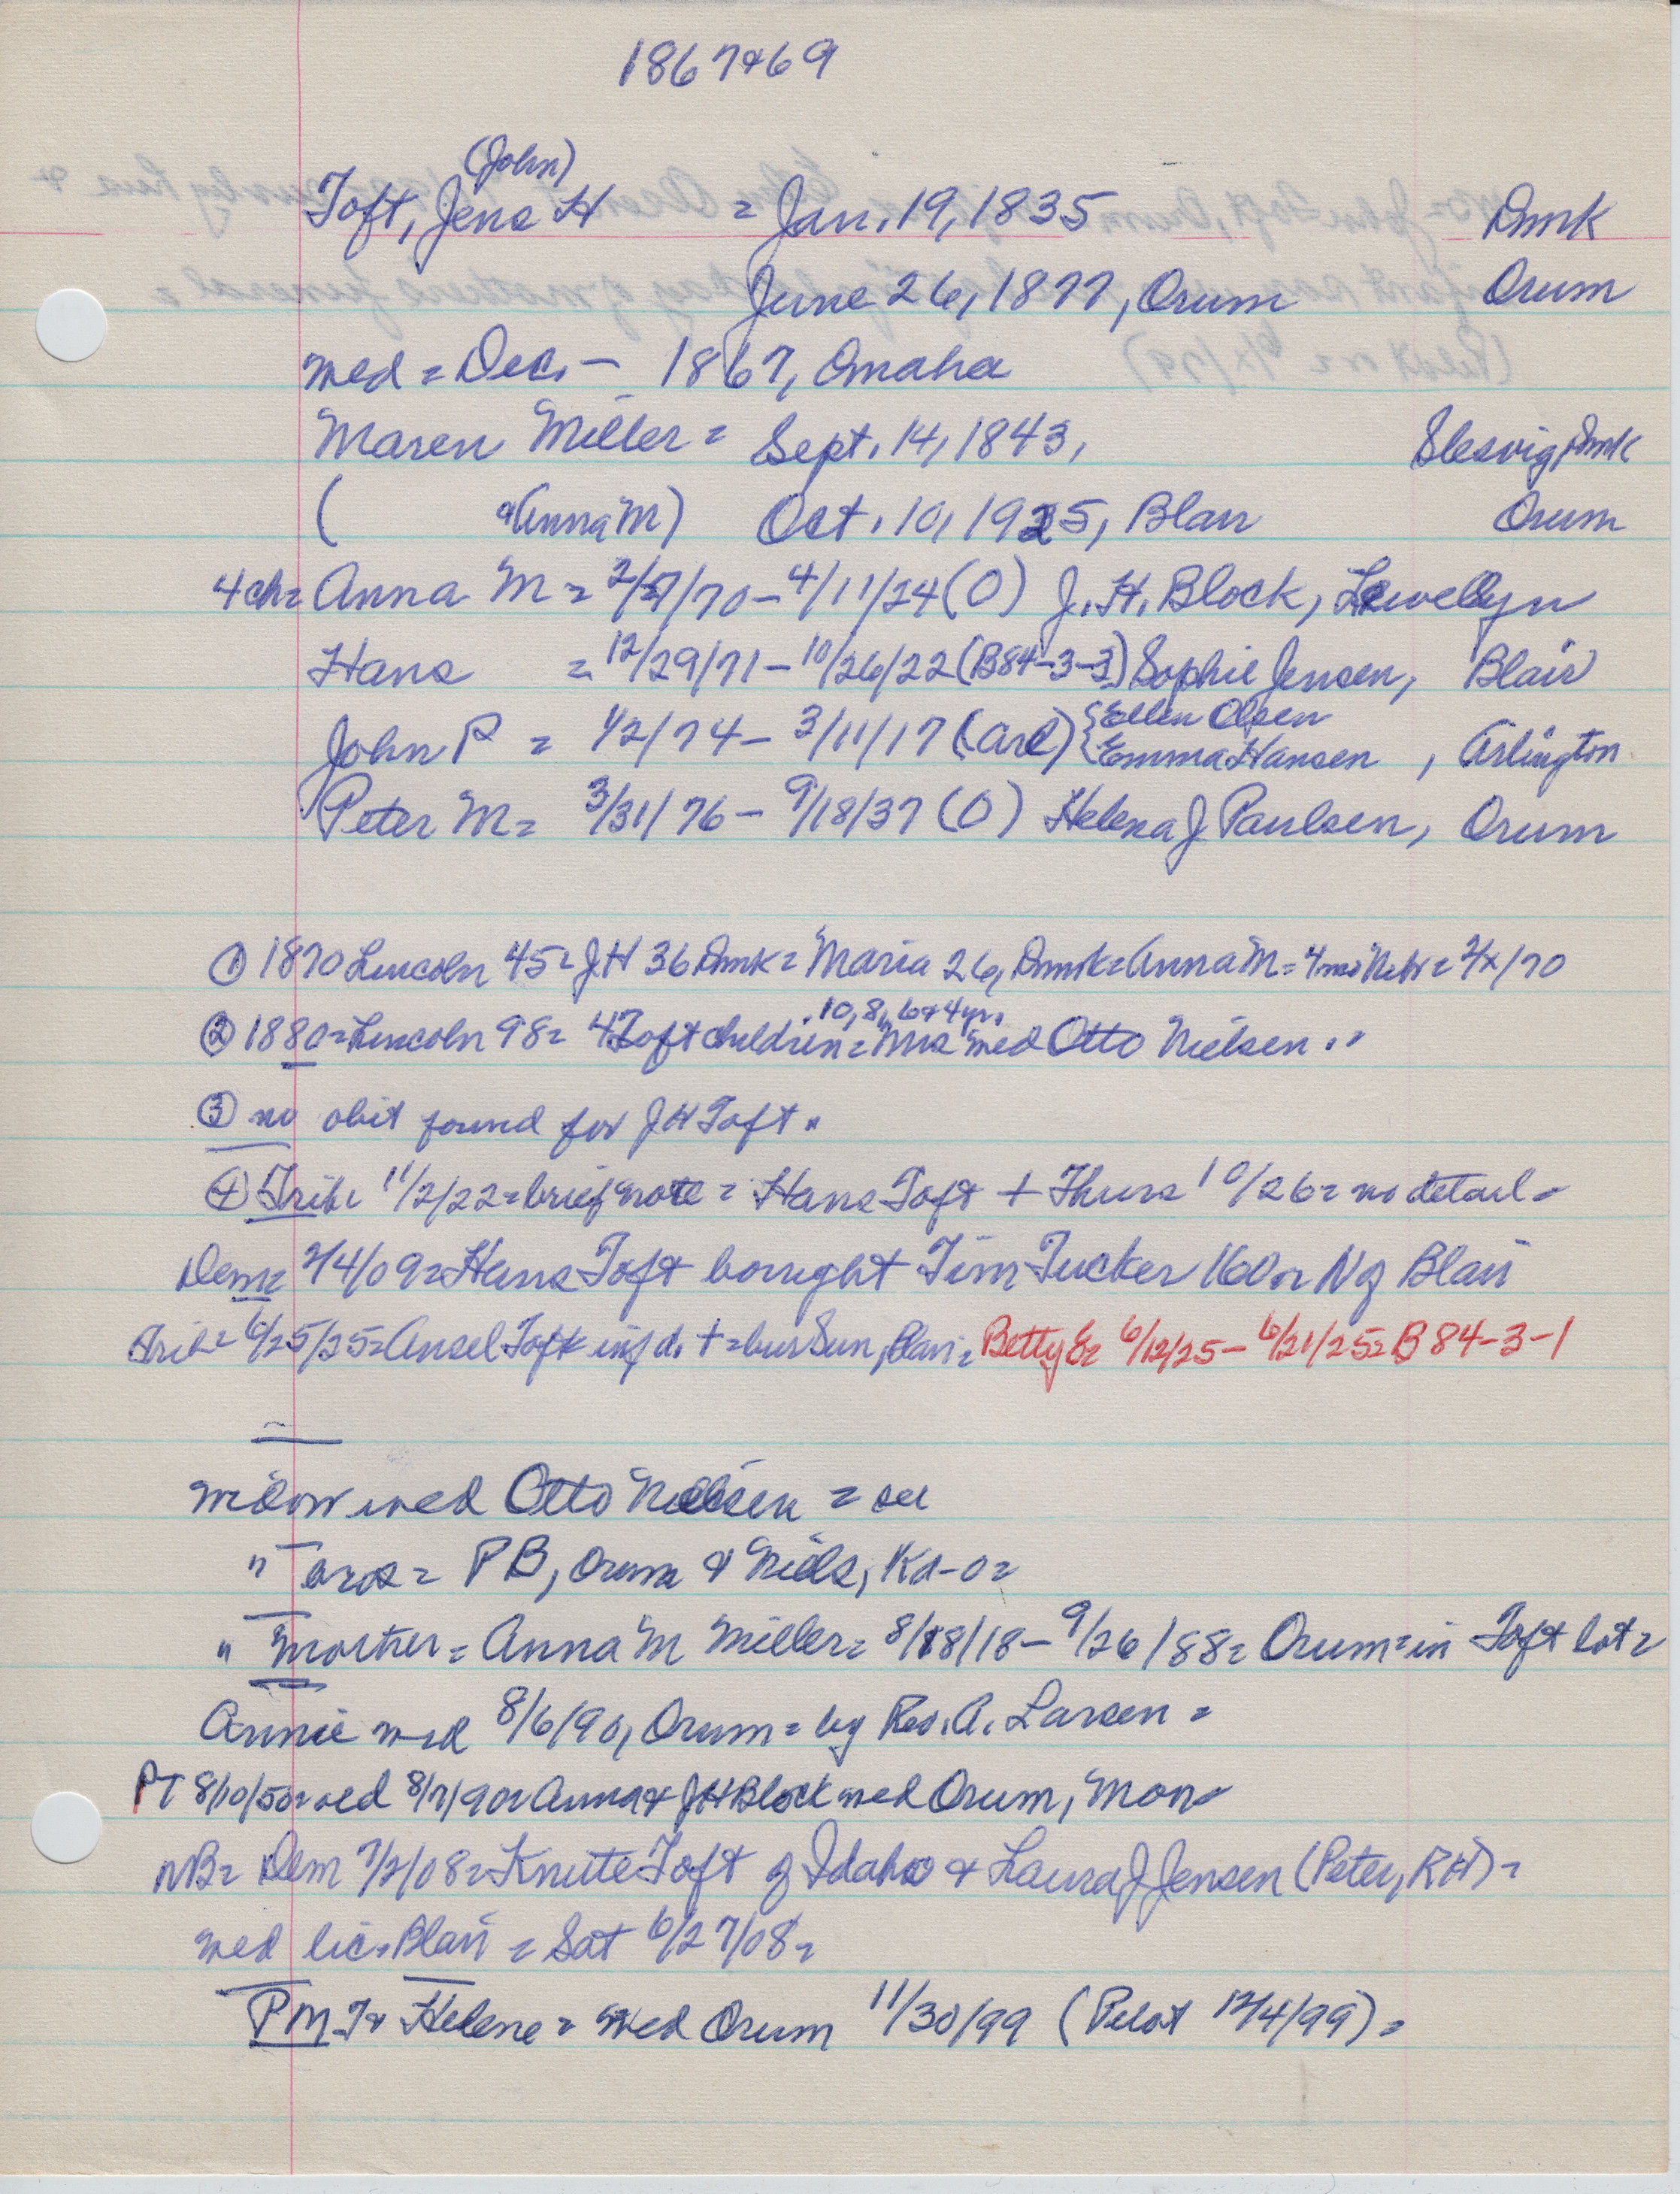 1867+69
(John)
Toft, Jens H = Jan. 19, 1835 Dmk
June 26, 1877, Orum Orum
med = Dec. – 1867, Omaha
Maren Miller = Sept. 14, 1843, Slesvig, Dmk
( Anna M) Oct. 10, 1925, Blair Orum
4 ch = Anna M = 2/ /70 – 4/11/24 (O) J. H. Block, Lewellyn
Hans = 12/29/71 – 10/26/22 (B84-3-3) Sophie Jensen, Blair
John P = 1/2/74 – 3/11/17 (Arl) { Ellen Olsen
Emma Hansen , Arlington
Peter M = 3/31/76 – 9/18/37 (O) Helena J Paulsen, Orum
① 1870 Lincoln 45 = JH 36 Dmk = Maria 26, Dmk = Anna M = 4 mo Nebr = /70
10, 8, 6 & 4 yrs.
② 1880 = Lincoln 98 = 4 Toft children = Mrs med Otto Nielsen . "
③ no obit found for JH Toft "
④ Trib = 11/2/22 = brief note = Hans Toft + Thurs 10/26 = no detail =
Dem = 2/4/09 = Hans Toft bought Tim Tucker 160 N of Blair
Trib = 6/25/25 = Ansel Toft inf d. + = bur Sun, Blair = Betty E = 6/12/25 – 6/21/25 = B 84-3-1
widow med Otto Nielsen = see
" bros = P B, Orum & Niels, Ka-O =
" mother = Anna M Miller = 8/18/18 – 9/26/88 = Orum = in Toft lot =
Annie med 8/6/90, Orum = by Rev. A. Larsen =
PT 8/10/50 = old 8/7/90 = Anna & JH Block med Orum, Mon =
NB = Dem 7/2/08 = Knute Toft of Idaho & Laura J Jensen (Peter, RH) =
med lic = Blair = Sat 6/27/08 =
PM T & Helene = med Orum 11/30/99 (Pilot 12/4/99) =